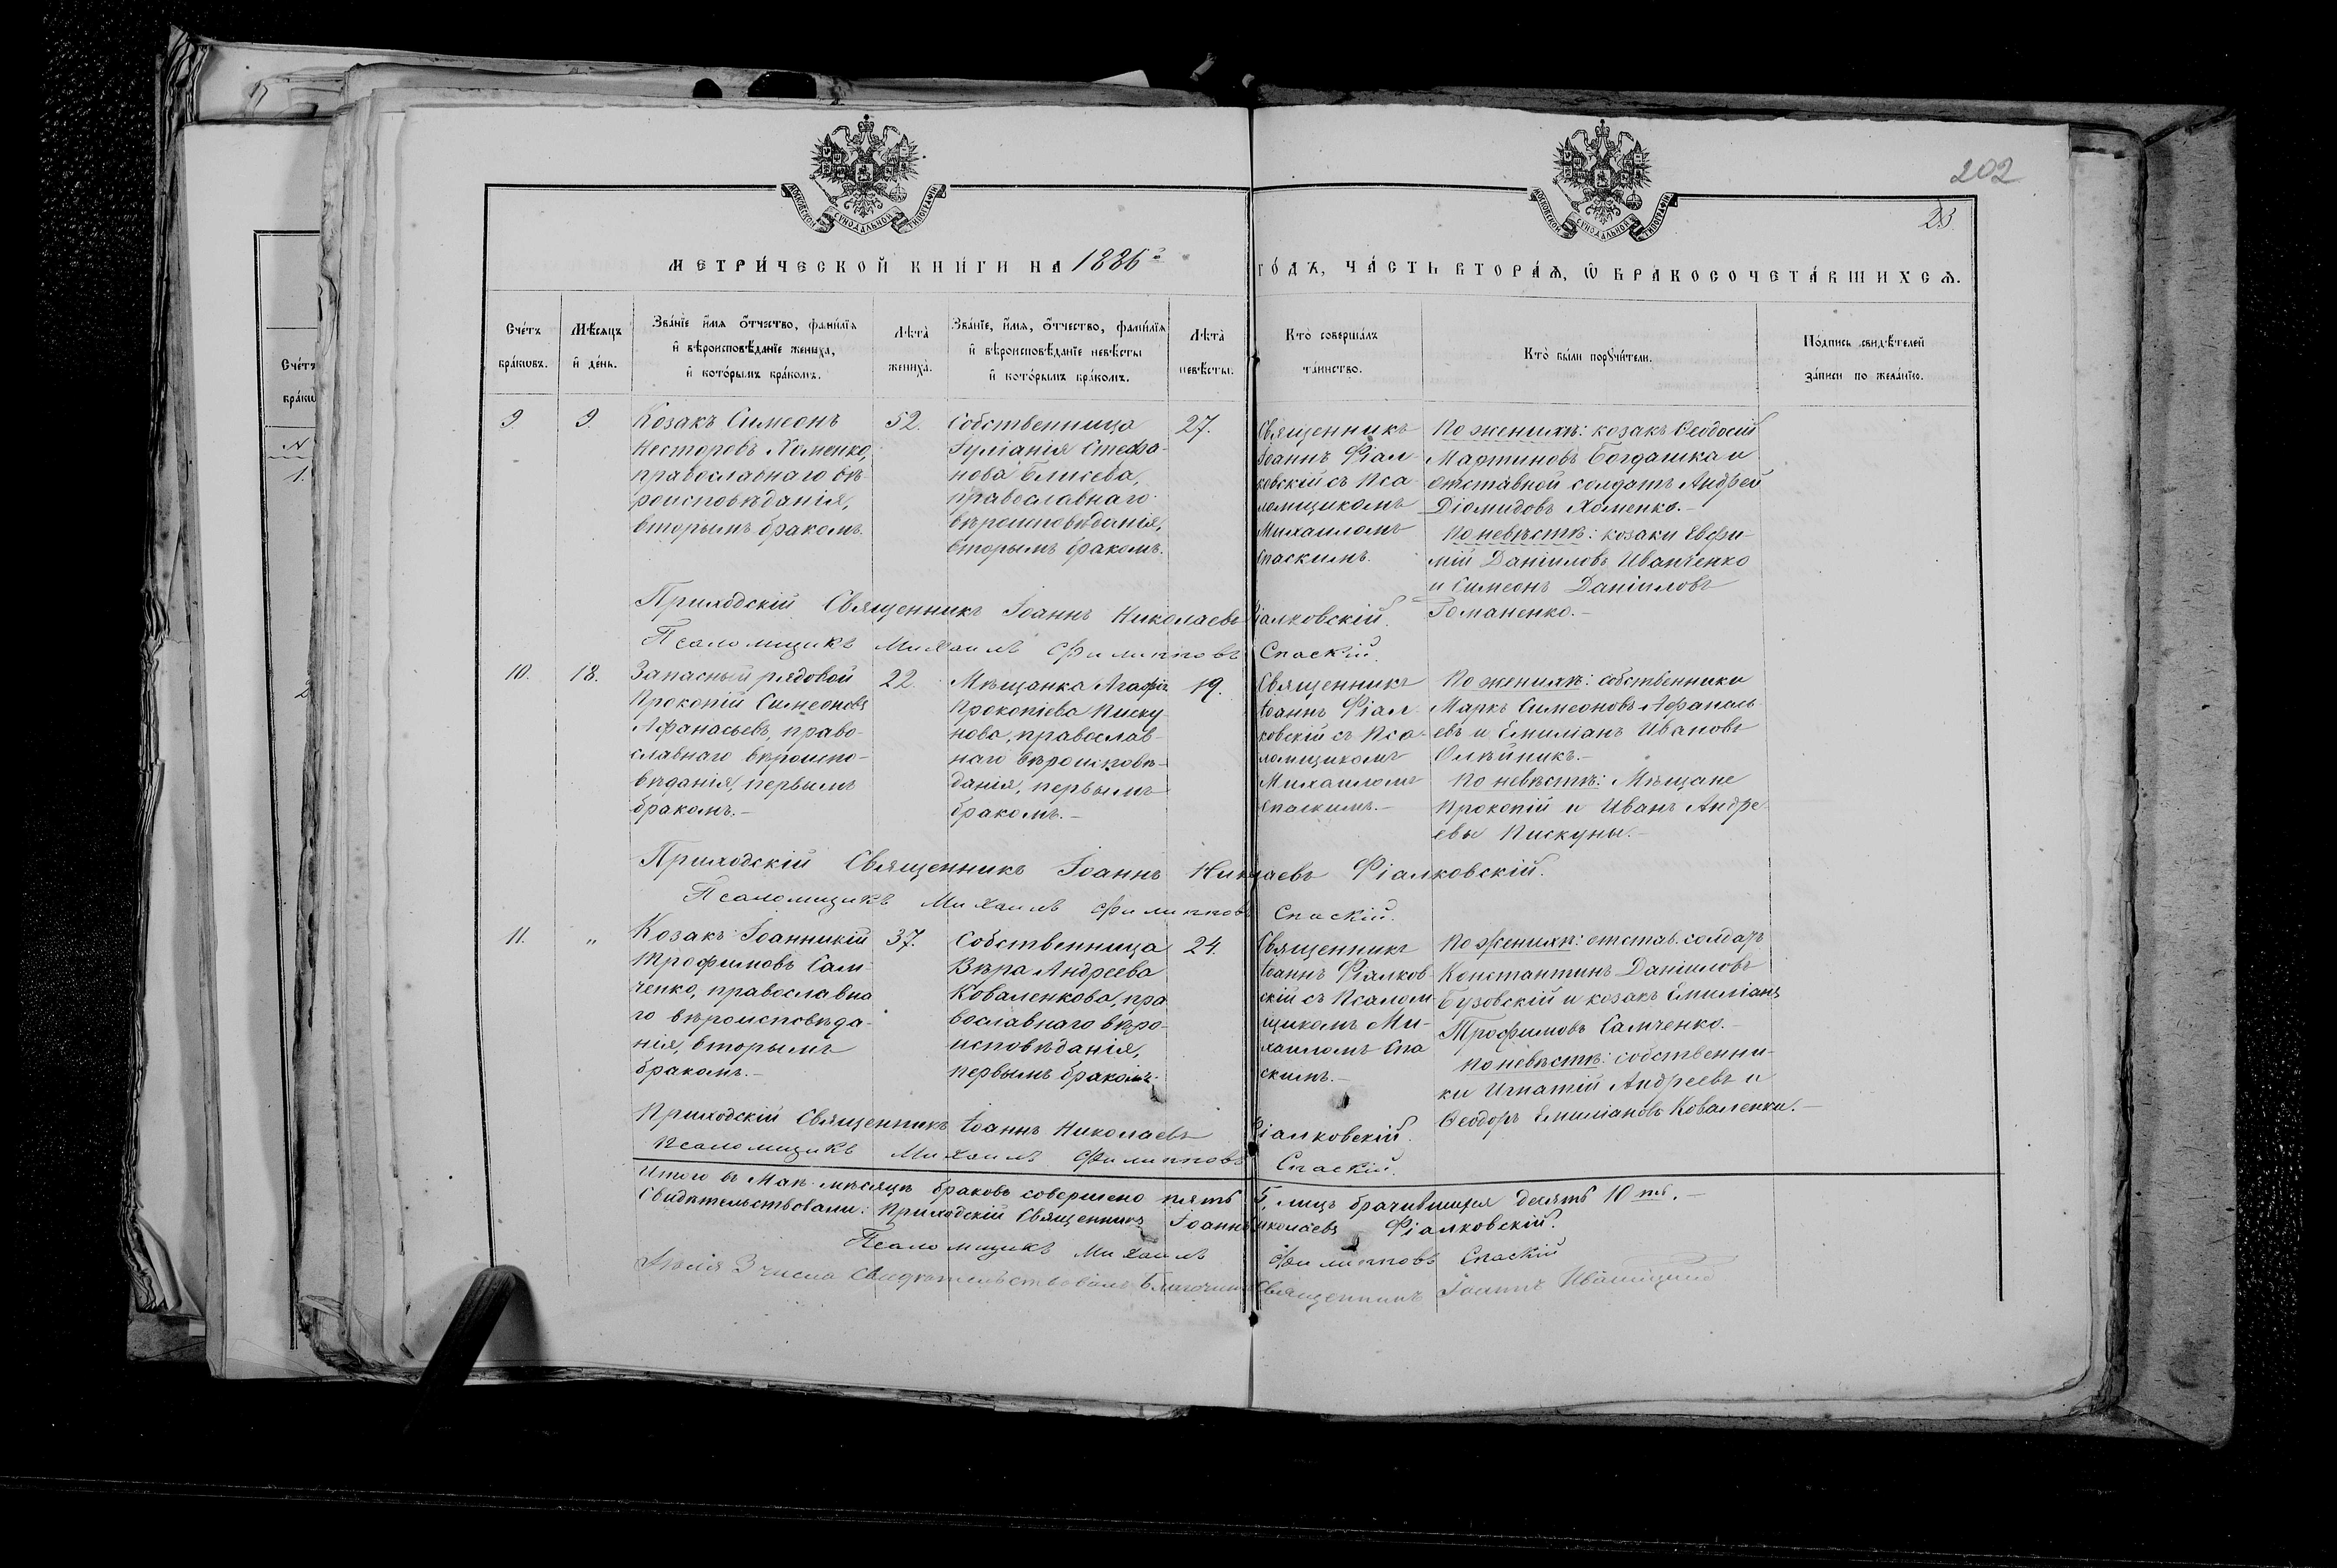 202
23
МОСКОВСКОЙ СУНОДАЛЬНОЙ ТИПОГРАФІИ
МОСКОВСКОЙ СУНОДАЛЬНОЙ ТИПОГРАФІИ
МЕТРИ́ЧЕСКОЙ КНИ́ГИ НА 1886й ГО́ДЪ, ЧА́СТЬ ВТОРА́Ѧ, Ѡ БРАКОСОЧЕТА́ВШИХСѦ.
Сче́тъ
бра́кѡвъ.
Мѣ́сяцъ
и де́нь.
Зва́нїе и́мя о́тчество, фами́лїя
и вѣроисповѣ́данїе жениха̀,
и кото́рымъ бра́комъ.
Лѣта̀
жениха̀.
Зва́нїе, и́мя, о́тчество, фами́лїя
и вѣроисповѣ́данїе невѣ́сты
и кото́рымъ бра́комъ.
Лѣта̀
невѣ́сты.
Кто̀ соверша́лъ
та́инство.
Кто̀ бы́ли порꙋчи́тели.
По́дпись свидѣ́телей
за́писи по жела́нїю.
9.
9.
Козакъ Симеонъ
Несторовъ Хоменко,
православнаго вѣ-
роисповѣданія,
вторымъ бракомъ.
52.
Собственница
Іуліанія Стефа-
нова Елисева,
православнаго
вѣроисповѣданія,
вторымъ бракомъ.
27.
Священникъ
Іоаннъ Фіал-
ковскій съ Пса-
ломщикомъ
Михаиломъ
Спаскимъ.
По женихѣ: козакъ Ѳеодосій
Мартиновъ Богдашка и
отставной солдатъ Андрей
Діомидовъ Хоменко.-
По невѣстѣ: козаки Евфи-
мій Даніиловъ Иванченко
и Симеонъ Даніиловъ
Романенко.-
Приходскій Священникъ Іоаннъ Николаевъ Фіалковскій.
Псаломщикъ Михаилъ Филипповъ Спаскій.
10.
18.
Запасный рядовой
Прокопій Симеоновъ
Афанасьевъ, право-
славнаго вѣроиспо-
вѣданія, первымъ
бракомъ.-
22.
Мѣщанка Агафія
Прокопіева Писку-
нова, православ-
наго вѣроисповѣ-
данія, первымъ
бракомъ.-
19.
Священникъ
Іоаннъ Фіал-
ковскій съ Пса-
ломщикомъ
Михаиломъ
Спаскимъ.-
По женихѣ: собственники
Маркъ Симеоновъ Афанась
евъ и Емиліанъ Ивановъ
Олѣйникъ.-
По невѣстѣ: Мѣщане
Прокопій и Иванъ Андре
евы Пискуны.-
Приходскій Священникъ Іоаннъ Николаевъ Фіалковскій.
Псаломщикъ Михаилъ Филипповъ Спаскій.
11.
"
Козакъ Іоанникій
Трофимовъ Сам-
ченко, православна
го вѣроисповѣда-
нія, вторымъ
бракомъ.-
37.
Собственница
Вѣра Андреева
Коваленкова, пра
вославнаго вѣро-
исповѣданія,
первымъ бракомъ.
24.
Священникъ
Іоаннъ Фіалков-
скій съ Псалом-
щикомъ Ми-
хаиломъ Спа
скимъ.-
По женихѣ: отстав. солдатъ
Константинъ Даніиловъ
Бузовскій и козакъ Емиліанъ
Трофимовъ Самченко.-
По невѣстѣ: собственни-
ки Игнатій Андреевъ и
Ѳеодоръ Емиліановъ Коваленки.-
Приходскій Священникъ Іоаннъ Николаевъ Фіалковскій.
Псаломщикъ Михаилъ Филипповъ Спаскій.
Итого въ Маѣ мѣсяцѣ браковъ совершено пять 5, лицъ брачившихся десять 10 ть.-
Свидѣтельствовали: Приходскій Священникъ Іоаннъ Николаевъ Фіалковскій.
Псаломщикъ Михаилъ Филипповъ Спаскій
3 числа свидѣтельствовалъ Благочинный Священникъ Іоаннъ
Счетъ
бракѡ
N
1.
2